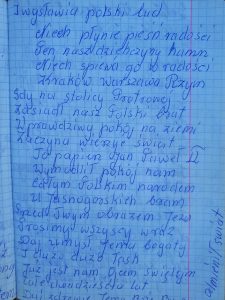 I wysławia polski lud
Niech płynie pieśń radości
Ten nasz dziękczynny hymn
Niech śpiewa od radości
Kraków Warszawa Rzym
Gdy na stolicy Piotrowej
Zasiadł nasz Polski brat
W prawdziwy pokój na ziemi
Zaczyna wierzyć świat
To papież Jan Paweł II
Wymodlił pokój nam
całym Polskim narodem
U Jasnogórskich bram
Przed Twym obrazem
Prosimy wszyscy wraz
Daj umysł Jemu bogaty
I dużo dużo łask
Już jest nam Ojcem świętym
lat
zmienił świat